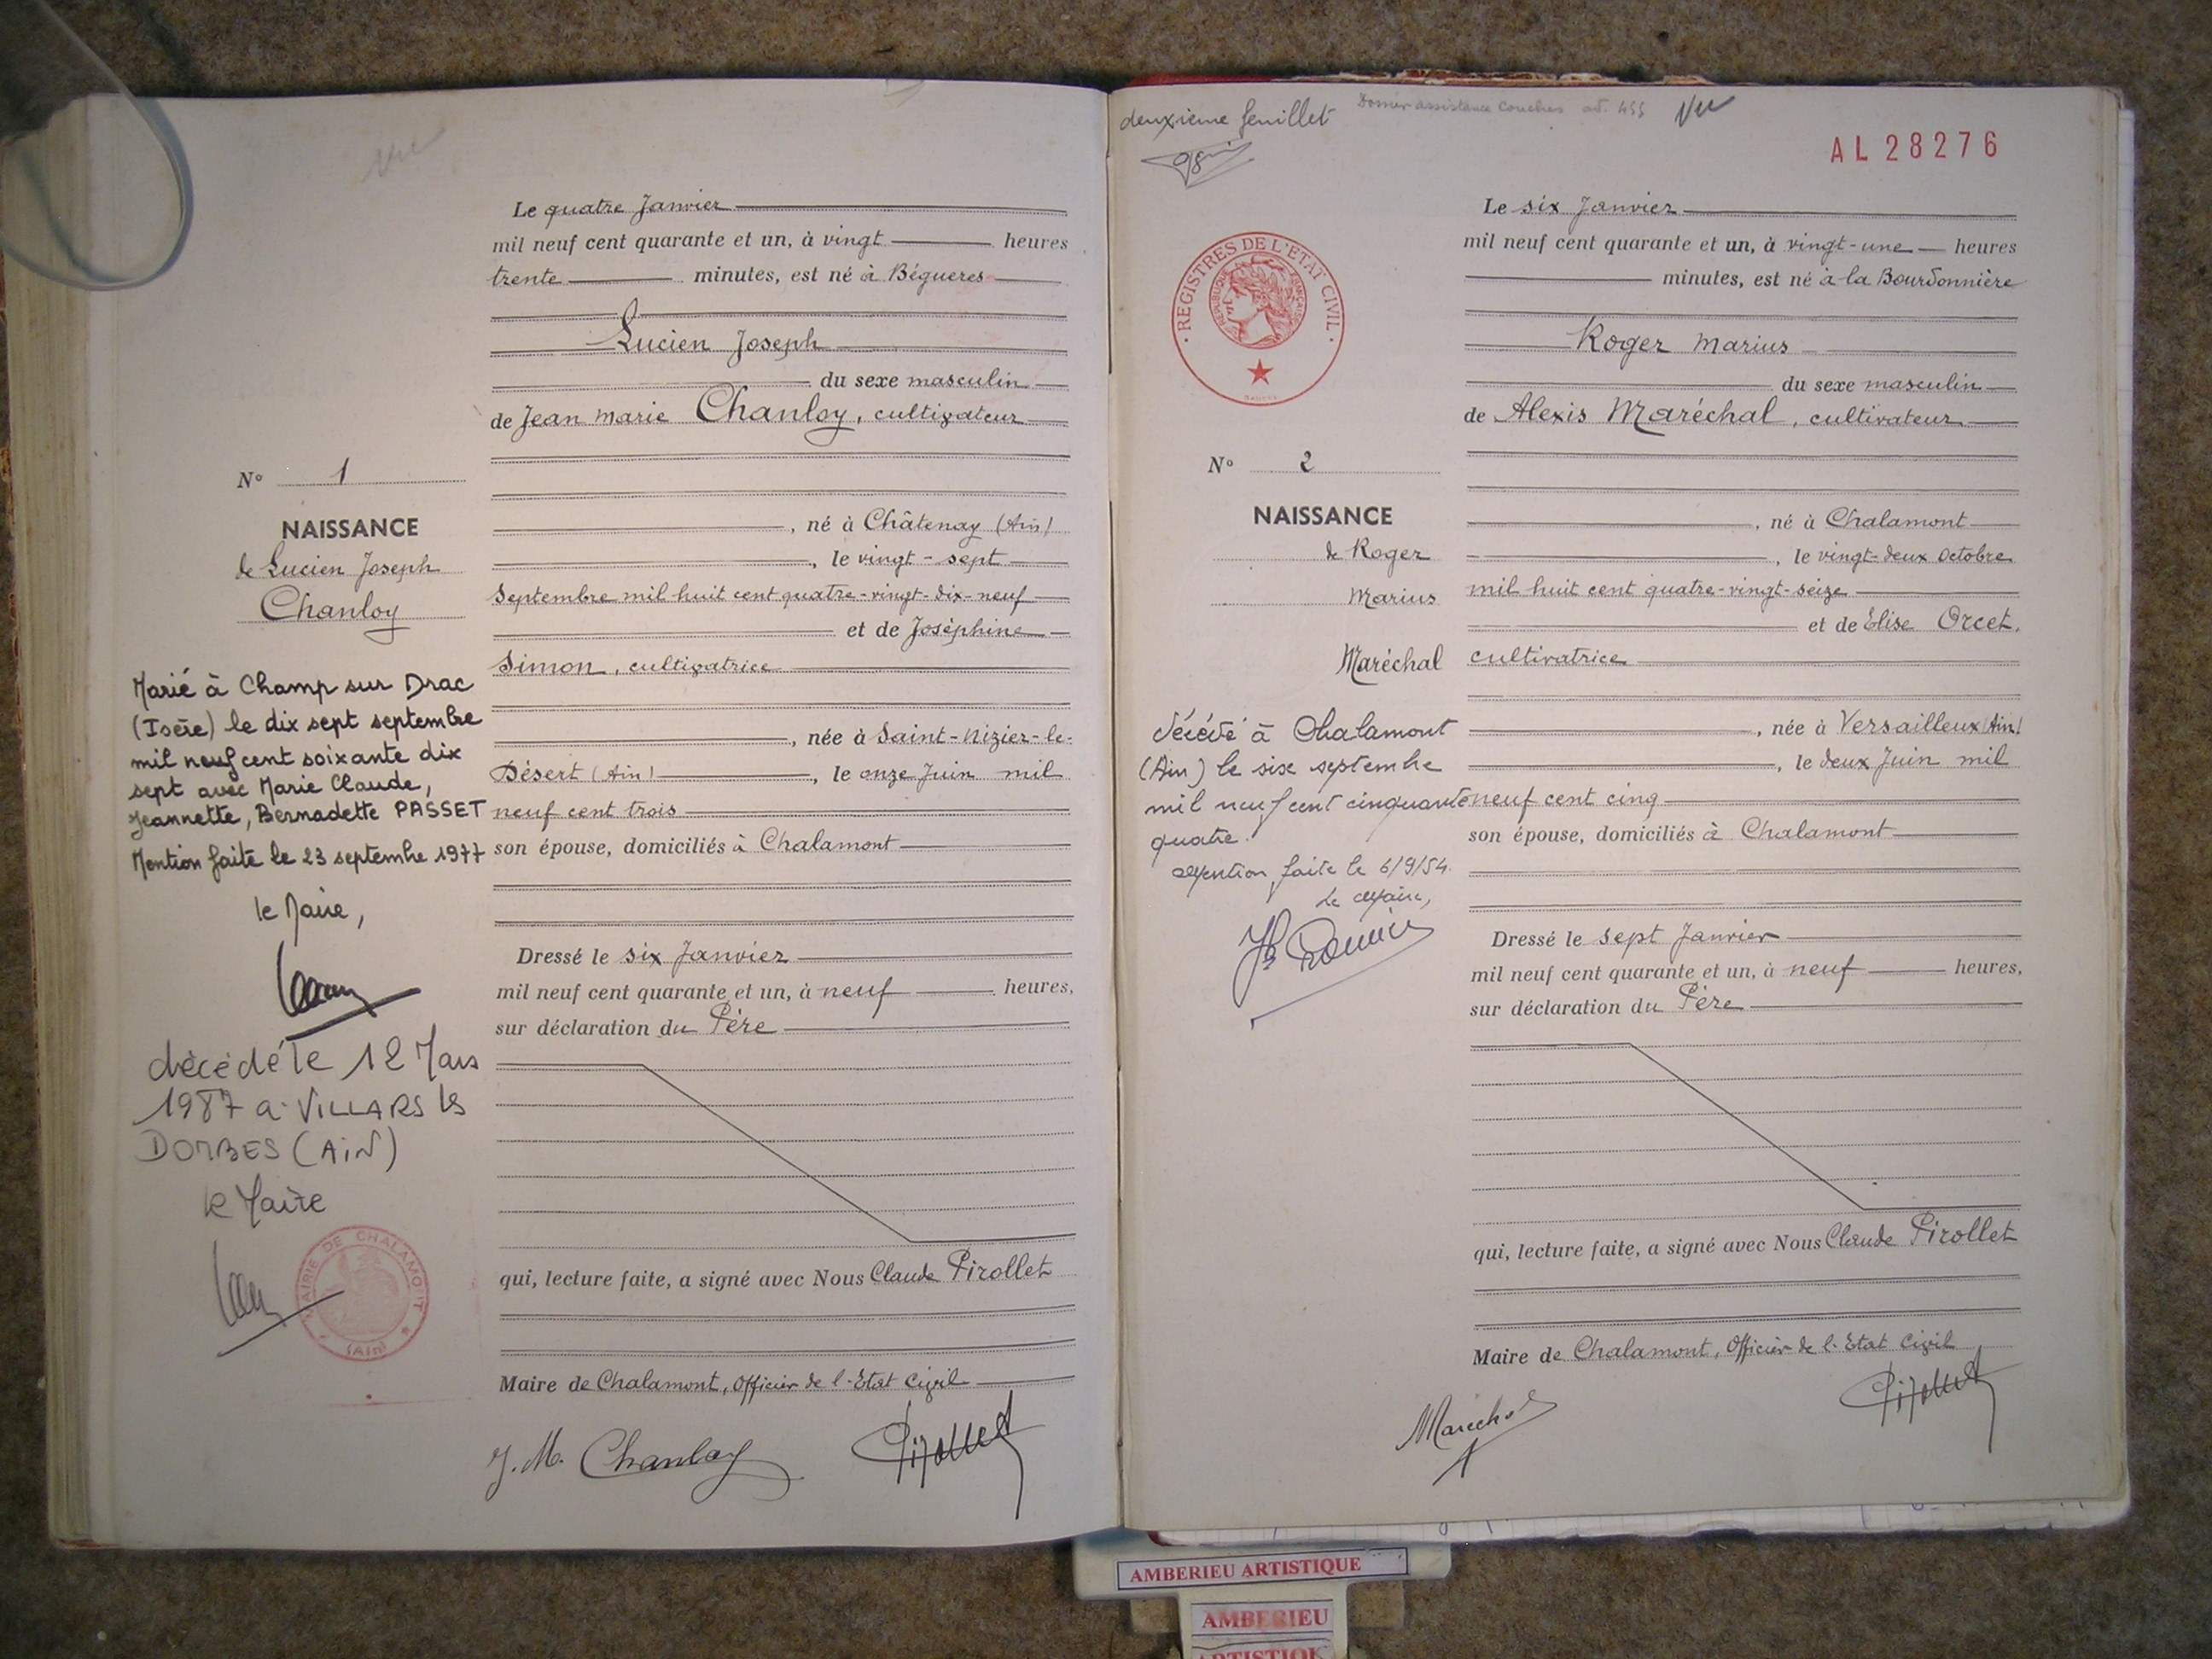 Le quatre Janvier
mil neuf cent quarante et un, à vingt heures
trente minutes, est né à Bégueres
Lucien Joseph
du sexe masculin
de Jean Marie Chanloy, cultivateur
N° 1
NAISSANCE
de Lucien Joseph
Chanloy
, né à Châtenay (Ain)
, le vingt-sept
Septembre mil huit cent quatre-vingt-dix-neuf
et de Joséphine
Simon, cultivatrice
, née à Saint-Nizier-le-
Désert (Ain) , le onze Juin mil
neuf cent trois
son épouse, domiciliés à Chalamont
Marié à Champ sur Drac
(Isère) le dix sept septembre
mil neuf cent soixante dix
sept avec Marie Claude,
Jeannette, Bernadette PASSET
Mention faite le 23 septembre 1977
le Maire,
décédé le 12 Mars
1987 a VILLARS les
DOMBES (AIN)
le Maire
MAIRIE DE CHALAMONT
(Ain)
Dressé le six Janvier
mil neuf cent quarante et un, à neuf heures,
sur déclaration du Père
qui, lecture faite, a signé avec Nous Claude Pirollet
Maire de Chalamont, Officier de l'Etat Civil
J. M. Chanloy Pirollet
deuxieme feuillet
Vu
AL28276
REGISTRES DE L'ETAT CIVIL
REPUBLIQUE FRANÇAISE
Le six Janvier
mil neuf cent quarante et un, à vingt-une heures
minutes, est né à la Bourdonnière
Roger Marius
du sexe masculin
de Alexis Maréchal, cultivateur
N° 2
NAISSANCE
de Roger
Marius
Maréchal
, né à Chalamont
, le vingt-deux Octobre
mil huit cent quatre-vingt-seize
et de Elise Orcet,
cultivatrice
, née à Versailleux (Ain)
, le deux Juin mil
neuf cent cinq
son épouse, domiciliés à Chalamont
décédé à Chalamont
(Ain) le six septembre
mil neuf cent cinquante
quatre.
Mention faite le 6/9/54.
Le Maire,
Dressé le sept Janvier
mil neuf cent quarante et un, à neuf heures,
sur déclaration du Père
qui, lecture faite, a signé avec Nous Claude Pirollet
Maire de Chalamont, Officier de l'Etat Civil
Maréchal Pirollet
AMBERIEU ARTISTIQUE
AMBERIEU
ARTISTIQUE